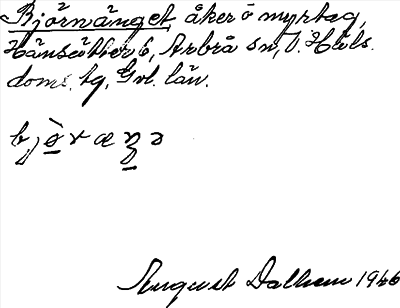 Björnänget, åker o myrtag,
Hänsätter 6, Arbrå sn, V. Häls.
doms. tg, Gvl. län.
bjò̱ræŋ̱ə
August Dalhem 1946